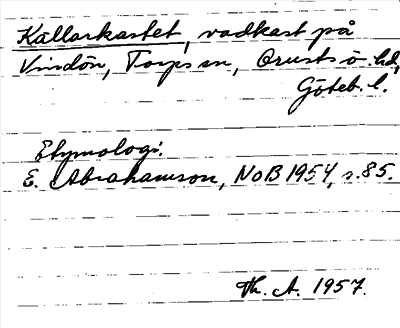 Kallarkastet, vadkast på
Vindön, Torps sn, Orusts ö. hd,
Göteb. l.
Etymologi.
E. Abrahamson, NoB 1954, s. 85.
Th. A. 1957.